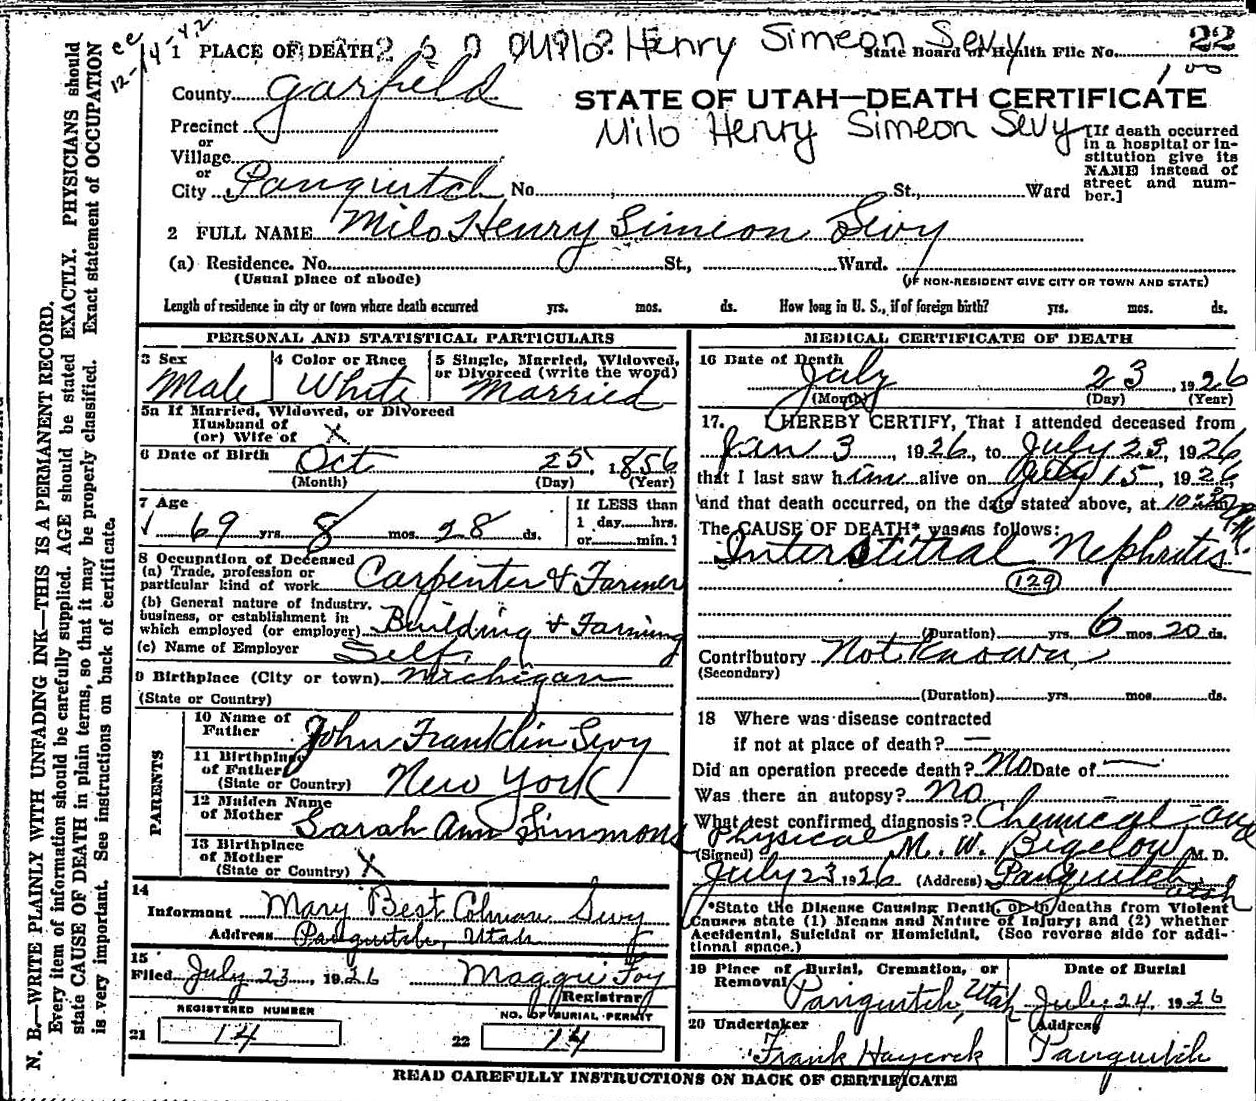 cc
12-14-42
1 PLACE OF DEATH 2 6 0 Milo Henry Simeon Sevy State Board of Health File No. 22
County Garfield 1 00
STATE OF UTAH—DEATH CERTIFICATE
Precinct Milo Henry Simeon Sevy
or
Village
or
City Panguitch No. St., Ward
[If death occurred
in a hospital or in-
stitution give its
NAME instead of
street and num-
ber.]
2 FULL NAME Milo Henry Simeon Sevy
(a) Residence. No. St., Ward.
(Usual place of abode) (IF NON-RESIDENT GIVE CITY OR TOWN AND STATE)
Length of residence in city or town where death occurred yrs. mos. ds. How long in U. S., if of foreign birth? yrs. mos. ds.
PERSONAL AND STATISTICAL PARTICULARS
3 Sex
Male
4 Color or Race
White
5 Single, Married, Widowed,
or Divorced (write the word)
Married
5a If Married, Widowed, or Divorced
Husband of
(or) Wife of X
6 Date of Birth Oct 25, 1856
(Month) (Day) (Year)
7 Age
69 yrs. 8 mos. 28 ds.
If LESS than
1 day......hrs.
or......min.?
8 Occupation of Deceased
(a) Trade, profession or
particular kind of work Carpenter & Farmer
(b) General nature of Industry,
business, or establishment in
which employed (or employer) Building & Farming
(c) Name of Employer Self
9 Birthplace (City or town) Michigan
(State or Country)
PARENTS
10 Name of
Father John Franklin Sevy
11 Birthplace
of Father
(State or Country) New York
12 Maiden Name
of Mother Sarah Ann Simmons
13 Birthplace
of Mother
(State or Country) X
14
Informant Mary Best Colman Sevy
Address Panguitch, Utah
15
Filed July 23, 1926 Maggie Foy
Registrar
REGISTERED NUMBER
21 14
NO. OF BURIAL PERMIT
22 14
MEDICAL CERTIFICATE OF DEATH
16 Date of Death
July 23, 1926
(Month) (Day) (Year)
17. I HEREBY CERTIFY, That I attended deceased from
Jan 3, 1926, to July 23, 1926
that I last saw him alive on July 15, 1926
and that death occurred, on the date stated above, at
The CAUSE OF DEATH* was as follows:
Interstitial Nephritis
129
(Duration) yrs. 6 mos. 20 ds.
Contributory Not Known
(Secondary)
(Duration) yrs. mos. ds.
18 Where was disease contracted
if not at place of death? —
Did an operation precede death? No Date of —
Was there an autopsy? No
What test confirmed diagnosis? Chemical and
Physical
(Signed) M. W. Bigelow M. D.
July 23 1926 (Address) Panguitch
Utah
*State the Disease Causing Death, or in deaths from Violent
Causes state (1) Means and Nature of Injury; and (2) whether
Accidental, Suicidal or Homicidal. (See reverse side for addi-
tional space.)
19 Place of Burial, Cremation, or
Removal
Panguitch, Utah
Date of Burial
July 24, 1926
20 Undertaker
Frank Haycock
Address
Panguitch
READ CAREFULLY INSTRUCTIONS ON BACK OF CERTIFICATE
N. B.—WRITE PLAINLY WITH UNFADING INK—THIS IS A PERMANENT RECORD.
Every item of information should be carefully supplied. AGE should be stated EXACTLY. PHYSICIANS should
state CAUSE OF DEATH in plain terms, so that it may be properly classified. Exact statement of OCCUPATION
is very important. See instructions on back of certificate.